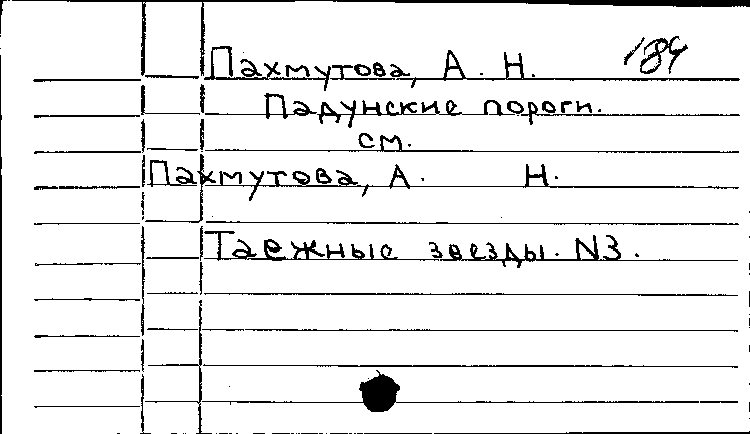 Пахмутова, А. Н. 184
Падунские пороги.
см.
Пахмутова, А. Н.
Таежные звезды. N3.